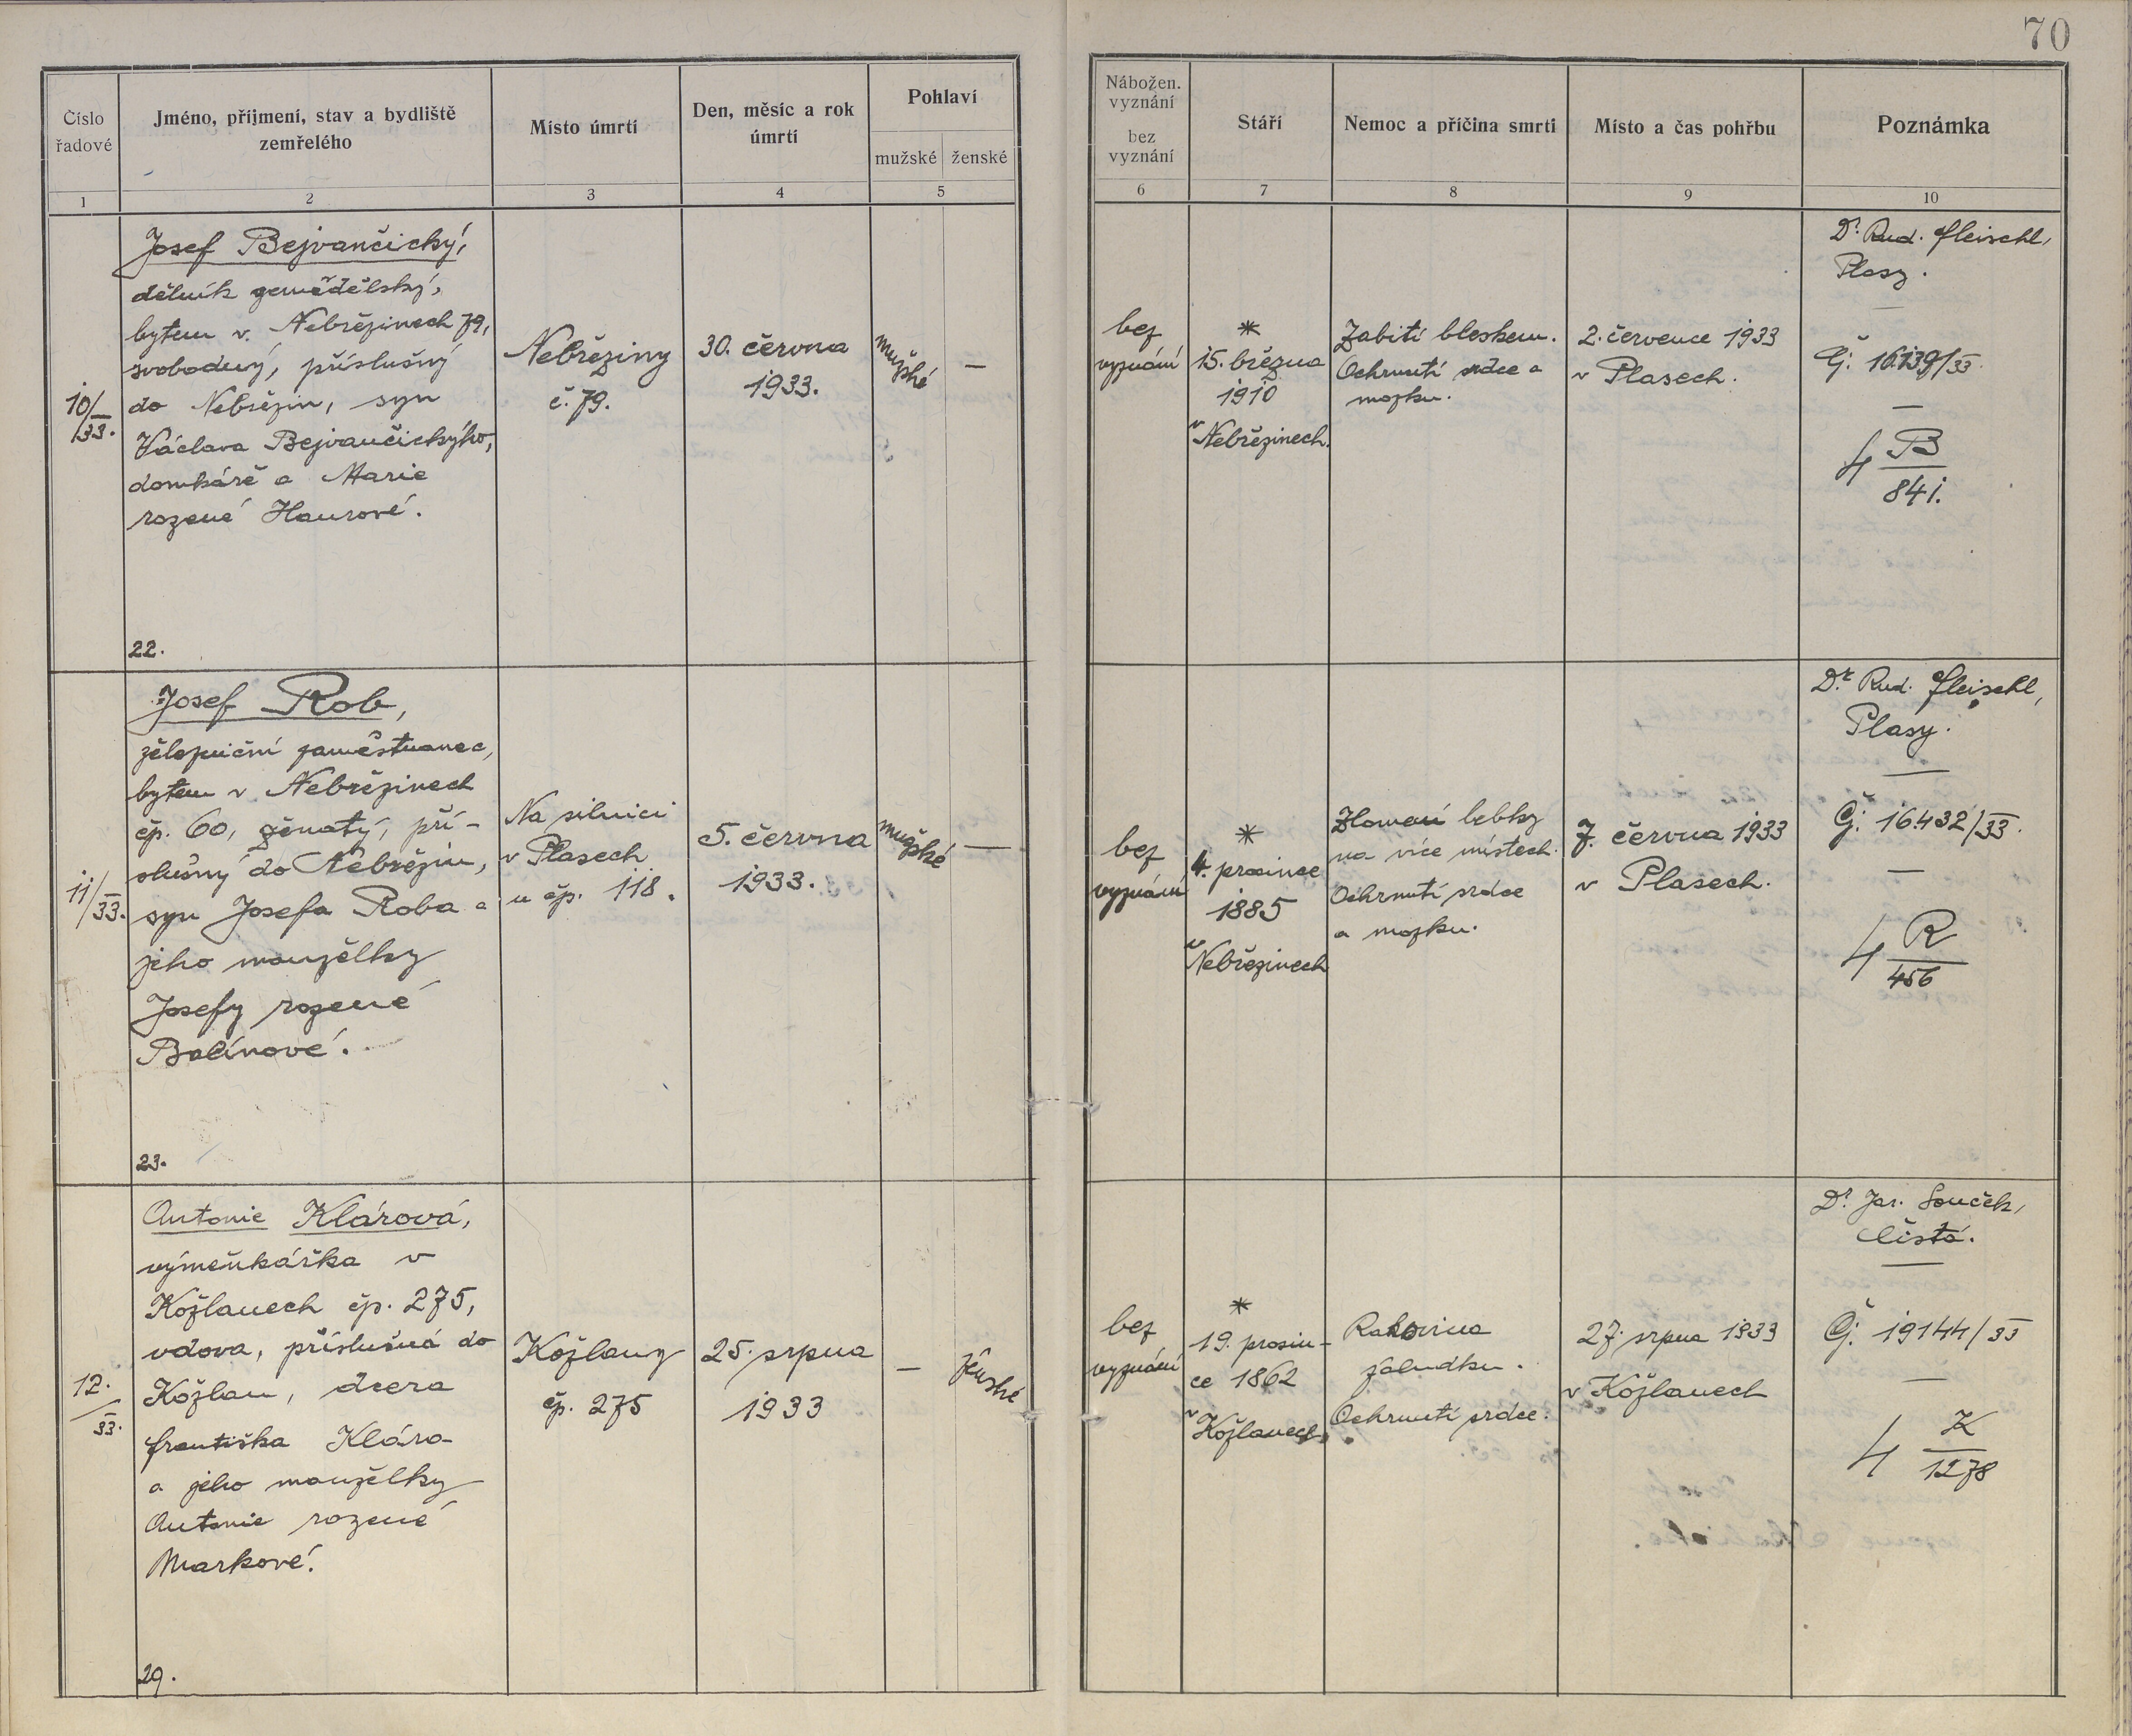 70
Číslo řadové
Jméno, příjmení, stav a bydliště zemřelého
Místo úmrtí
Den, měsíc a rok úmrtí
Pohlaví
mužské
ženské
Nábožen. vyznání
bez vyznání
Stáří
Nemoc a příčina smrti
Místo a čas pohřbu
Poznámka
1
2
3
4
5
6
7
8
9
10
10/33.
Josef Bejvančický,
dělník zemědělský,
bytem v. Nebřezinech 79,
svobodný, příslušný
do Nebřezin, syn
Václava Bejvančickýho,
domkáře a Marie
rozené Haurové.
22.
Nebřeziny
č. 79.
30. června
1933.
mužské
—
bez
vyznání
*
15. března
1910
v Nebřezinech.
Zabití bleskem.
Ochrnutí srdce a
mozku.
2. července 1933
v Plasech.
Dr. Rud. Fleischl,
Plasy.
—
Čj. 16139/33
—
4 B
841.
11/33.
Josef Rob,
želežniční zaměstnanec,
bytem v Nebřezinech
čp. 60, ženatý, pří-
slušný do Nebřezin,
syn Josefa Roba a
jeho manželky
Josefy rozené
Balínové.
23.
Na silnici
v Plasech
u čp. 118.
5. června
1933.
mužské
—
bez
vyznání
*
4. prosince
1885
v Nebřezinech
Zlomení lebky
na více místech.
Ochrnutí srdce
a mozku.
7. června 1933
v Plasech.
Dr. Rud. Fleischl,
Plasy.
—
Čj. 16432/33.
—
4 R
456
12./33.
Antonie Klárová,
výměnkářka v
Kožlanech čp. 275,
vdova, příslušná do
Kožlan, dcera
Františka Klára
a jeho manželky
Antonie rozené
Markové.
29.
Kožlany
čp. 275
25. srpna
1933
—
ženské
bez
vyznání
*
19. prosin-
ce 1862
v Kožlanech
Rakovina
žaludku.
Ochrnutí srdce.
27. srpna 1933
v Kožlanech
Dr. Jar. Souček,
Čistá.
—
Čj. 19144/33
—
4 K
1278